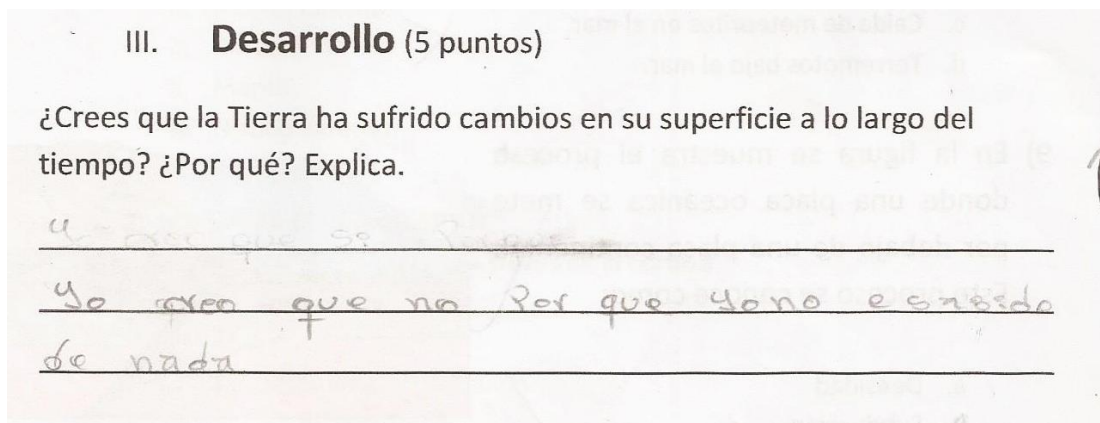 III. Desarrollo (5 puntos)
¿Crees que la Tierra ha sufrido cambios en su superficie a lo largo del
tiempo? ¿Por qué? Explica.
Yo creo que si
Yo creo que no Por que yo no
de nada